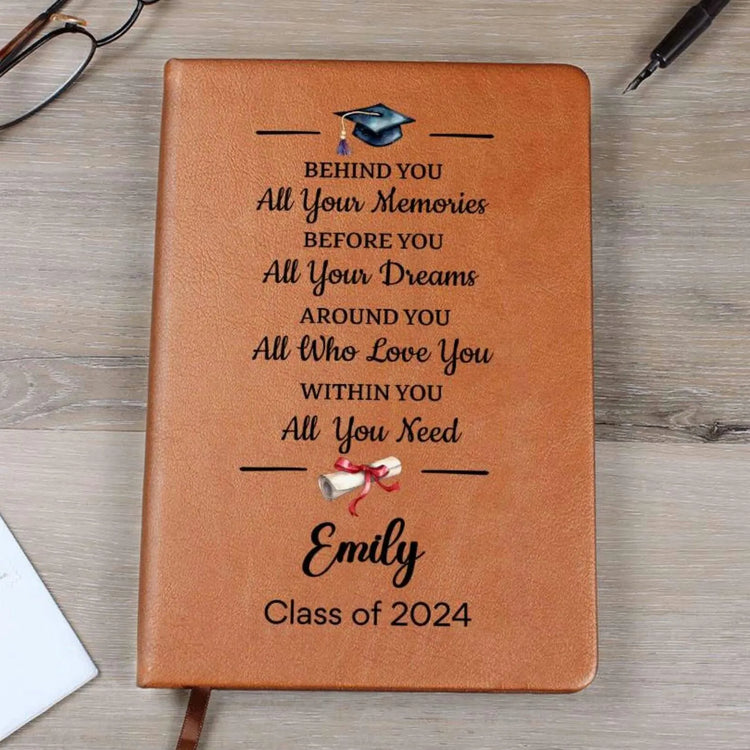 BEHIND YOU
All Your Memories
BEFORE YOU
All Your Dreams
AROUND YOU
All Who Love You
WITHIN YOU
All You Need
Emily
Class of 2024